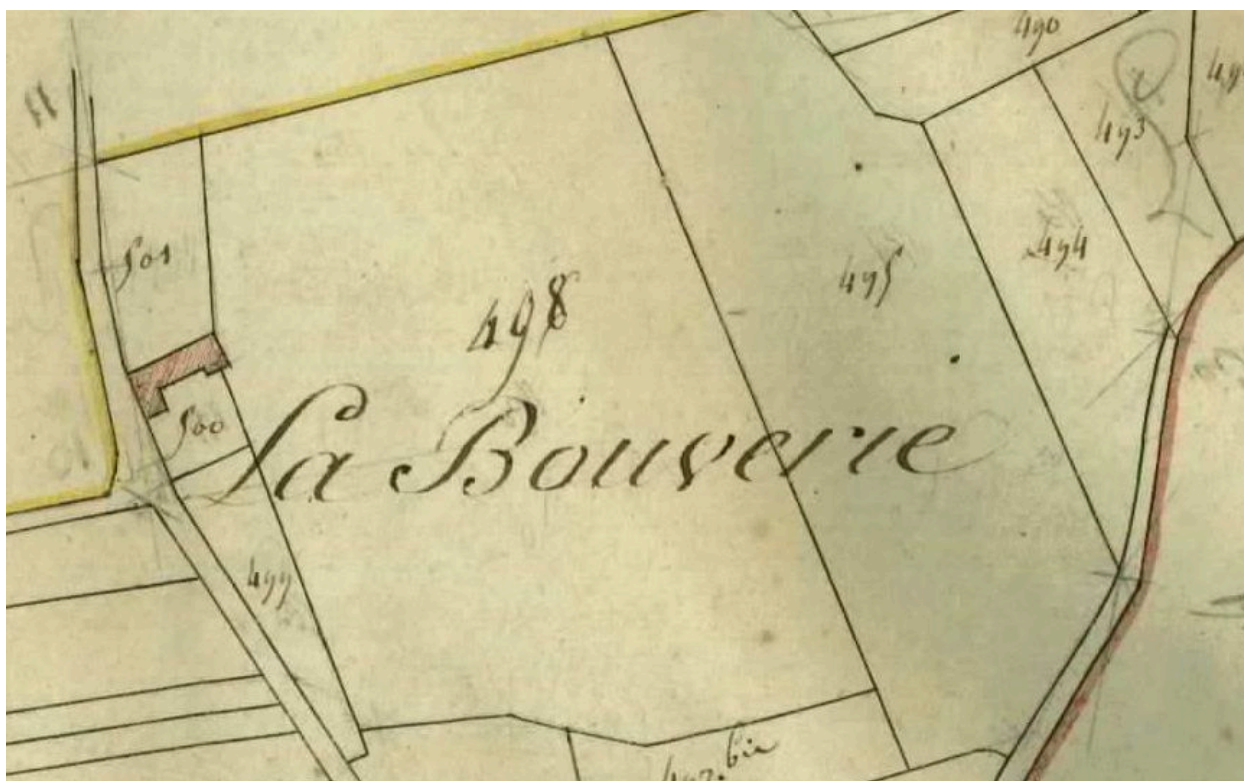 490
493
494
495
501
498
500
La Bouverie
499
497.bis